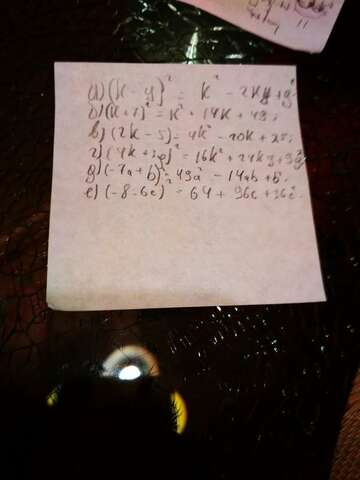 а) (k - y)² = k² - 2ky + y²
б) (k + 7)² = k² + 14k + 49;
в) (2k - 5) = 4k² - 20k + 25;
г) (4k + 3y)² = 16k² + 24ky + 9y²
д) (-7a + b)² = 49a² - 14ab + b²;
е) (-8 - 6c)² = 64 + 96c + 36c²